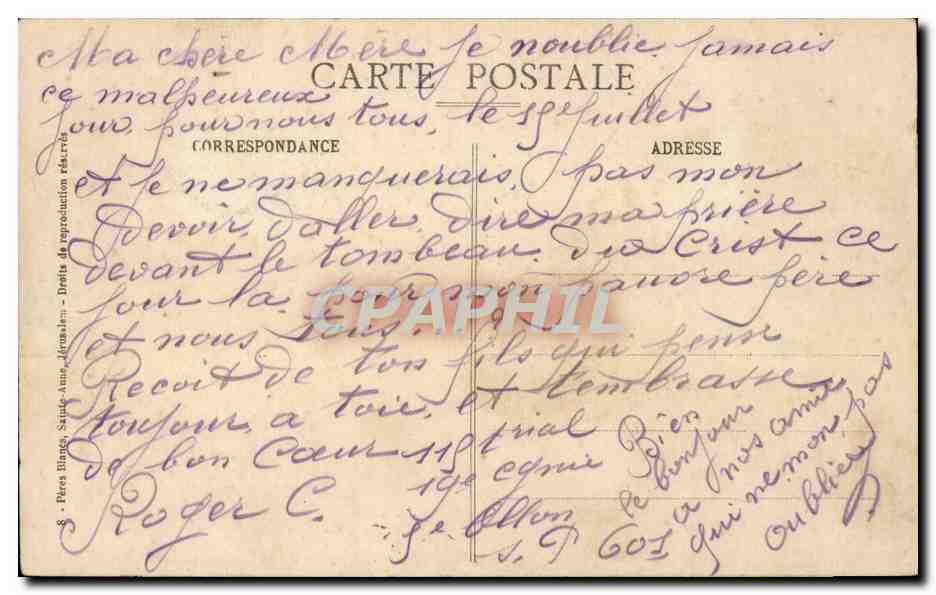 Ma chère Mère Je noublie jamais
CARTE POSTALE
ce malheureux
jour pour nous tous, le 15e juillet
CORRESPONDANCE
ADRESSE
et je ne manquerais, pas mon
devoir, d'aller, dire ma prière
devant le tombeau. du Crist ce
jour la. pour mon pauvre père
et nous tous.
Recoit de ton fils qui pense
toujour, a toie, et tembrasse
de bon Cœur 115e trial
19e cgnie
Roger C.
3e Btlon
s. P 601
Bien
le bonjour
a nos amis
qui ne mon pas
oublier
8 - Pères Blancs, Sainte-Anne, Jérusalem - Droits de reproduction réservés
CPAPHIL